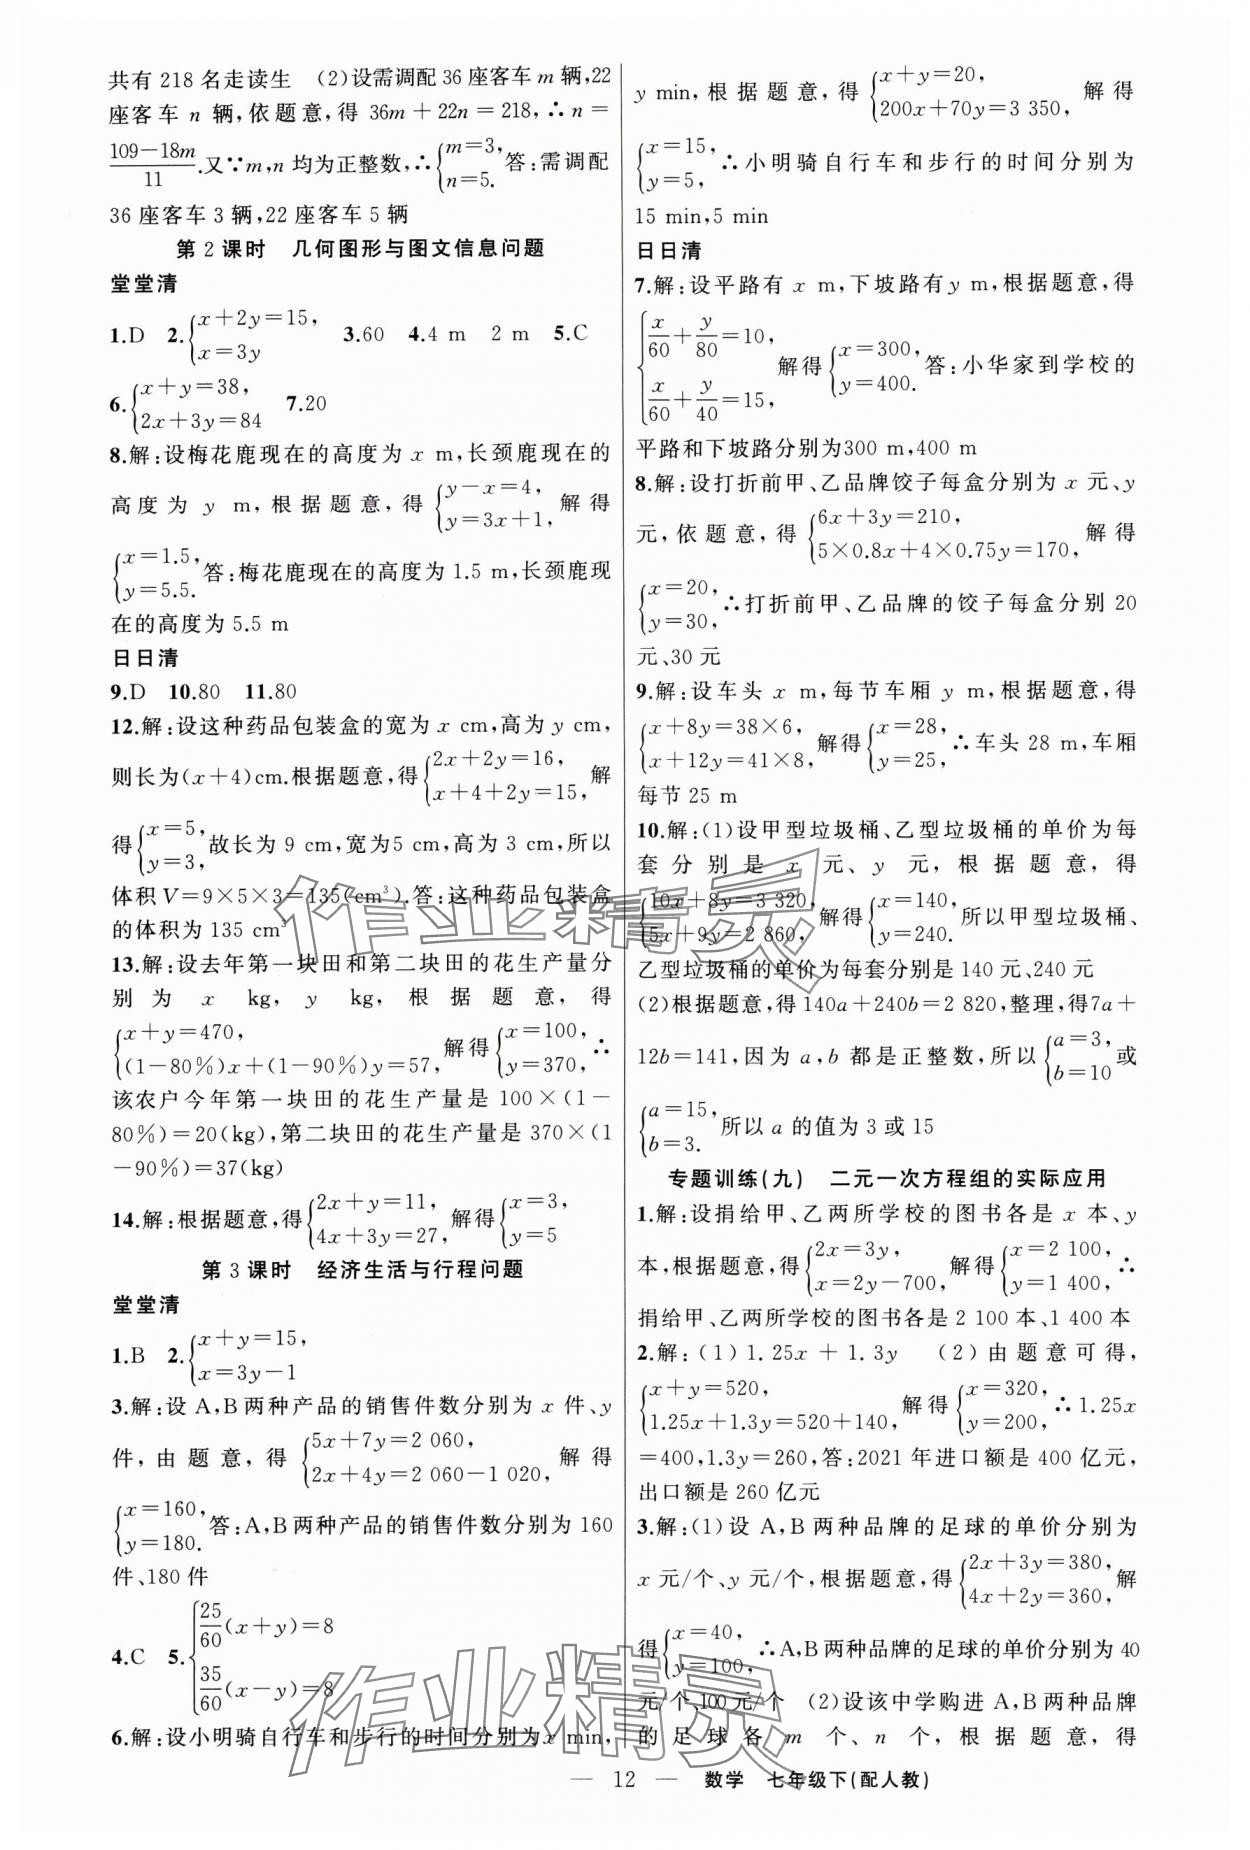 共有 218 名走读生　(2)设需调配 36 座客车 m 辆,22
座客车 n 辆,依题意,得 36m+22n=218,∴n=
109-18m
11
.又∵m,n 均为正整数,∴{m=3,
n=5.
答:需调配
36 座客车 3 辆,22 座客车 5 辆
第 2 课时　几何图形与图文信息问题
堂堂清
1.D　2.{x+2y=15,
x=3y
3.60　4.4 m　2 m　5.C
6.{x+y=38,
2x+3y=84
7.20
8.解:设梅花鹿现在的高度为 x m,长颈鹿现在的
高度为 y m,根据题意,得{y-x=4,
y=3x+1,
解得
{x=1.5,
y=5.5.
答:梅花鹿现在的高度为 1.5 m,长颈鹿现
在的高度为 5.5 m
日日清
9.D　10.80　11.80
12.解:设这种药品包装盒的宽为 x cm,高为 y cm,
则长为(x+4)cm.根据题意,得{2x+2y=16,
x+4+2y=15,
解
得{x=5,
y=3,
故长为 9 cm,宽为5 cm,高为 3 cm,所以
体积 V=9×5×3=135(cm³).答:这种药品包装盒
的体积为 135 cm³
13.解:设去年第一块田和第二块田的花生产量分
别为 x kg, y kg,根据题意,得
{x+y=470,
(1-80%)x+(1-90%)y=57,
解得{x=100,
y=370,
∴
该农户今年第一块田的花生产量是 100×(1-
80%)=20(kg),第二块田的花生产量是 370×(1
-90%)=37(kg)
14.解:根据题意,得{2x+y=11,
4x+3y=27,
解得{x=3,
y=5
第 3 课时　经济生活与行程问题
堂堂清
1.B　2.{x+y=15,
x=3y-1
3.解:设 A,B 两种产品的销售件数分别为 x 件、y
件,由题意,得{5x+7y=2 060,
2x+4y=2 060-1 020,
解得
{x=160,
y=180.
答:A,B两种产品的销售件数分别为 160
件、180 件
4.C　5.{25/60(x+y)=8
35/60(x-y)=8
6.解:设小明骑自行车和步行的时间分别为x min,
y min,根据题意,得{x+y=20,
200x+70y=3 350,
解得
{x=15,
y=5,
∴小明骑自行车和步行的时间分别为
15 min,5 min
日日清
7.解:设平路有 x m,下坡路有y m,根据题意,得
{x/60+y/80=10,
x/60+y/40=15,
解得{x=300,
y=400.
答:小华家到学校的
平路和下坡路分别为300 m,400 m
8.解:设打折前甲、乙品牌饺子每盒分别为 x 元、y
元,依题意,得{6x+3y=210,
5×0.8x+4×0.75y=170,
解得
{x=20,
y=30,
∴打折前甲、乙品牌的饺子每盒分别 20
元、30 元
9.解:设车头 x m,每节车厢 y m,根据题意,得
{x+8y=38×6,
x+12y=41×8,
解得{x=28,
y=25,
∴车头 28 m,车厢
每节 25 m
10.解:(1)设甲型垃圾桶、乙型垃圾桶的单价为每
套分别是 x 元、y 元,根据题意,得
{10x+8y=3 320,
5x+9y=2 860,
解得{x=140,
y=240.
所以甲型垃圾桶、
乙型垃圾桶的单价为每套分别是 140 元、240 元
(2)根据题意,得 140a+240b=2 820,整理,得7a+
12b=141,因为 a,b 都是正整数,所以{a=3,
b=10
或
{a=15,
b=3.
所以 a 的值为 3 或 15
专题训练(九)　二元一次方程组的实际应用
1.解:设捐给甲、乙两所学校的图书各是 x 本、y
本,根据题意,得{2x=3y,
x=2y-700,
解得{x=2 100,
y=1 400,
∴
捐给甲、乙两所学校的图书各是 2 100 本、1 400 本
2.解:(1)1.25x+1.3y　(2)由题意可得,
{x+y=520,
1.25x+1.3y=520+140,
解得{x=320,
y=200,
∴1.25x
=400,1.3y=260,答:2021 年进口额是 400 亿元,
出口额是 260 亿元
3.解:(1)设 A,B 两种品牌的足球的单价分别为
x 元/个、y 元/个,根据题意,得{2x+3y=380,
4x+2y=360,
解
得{x=40,
y=100,
∴A,B两种品牌的足球的单价分别为 40
元/个、100元/个　(2)设该中学购进 A,B 两种品牌
的足球各 m 个、n 个,根据题意,得
— 12 —　数学　七年级下(配人教)
作业精灵
作业精灵